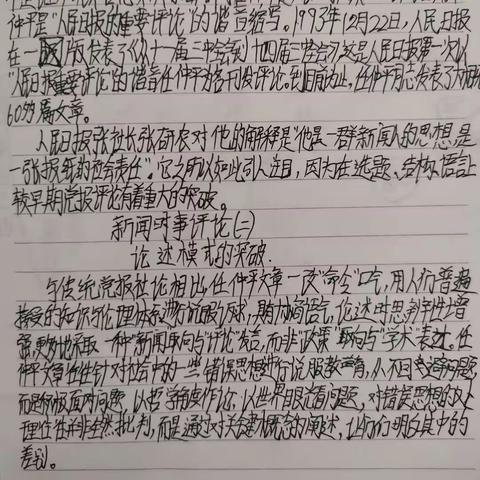 仲平是"人民日报的重要评论"的谐音缩写。1993年12月22日,人民日报
在一版发表了《从十一届三中全会到十四届三中全会》这是人民日报第一次以
"人民日报重要评论"的谐音任仲平为名刊发评论。到目前为止,任仲平同志发表了大概
60多篇文章。
人民日报张社长张研农对他的解释是"他是一群新闻人的思想,是
一张报纸的社会责任"。它之所以如此引人注目,因为在选题、结构、语言上
较早期党报评论有着重大的突破。
新闻时事评论(二)
论述模式的突破.
与传统党报社论相比,任仲平文章一改"命令"口吻,用人们普遍
接受的知识与伦理体系进行说服、协商语气,论述时思辨性增
强,更多地采取一种"新闻取向与"评论"发言,而非"政策"取向与"学术"表达。任
仲平文章往往针对社会中的一些错误思想进行说服教育,从不回避问题,
而是积极面对问题,以哲学角度作论,以世界眼光看问题,对错误思想的处
理往往并非全然批判,而是通过对关键概念的阐述,让人们明白其中的
差别。